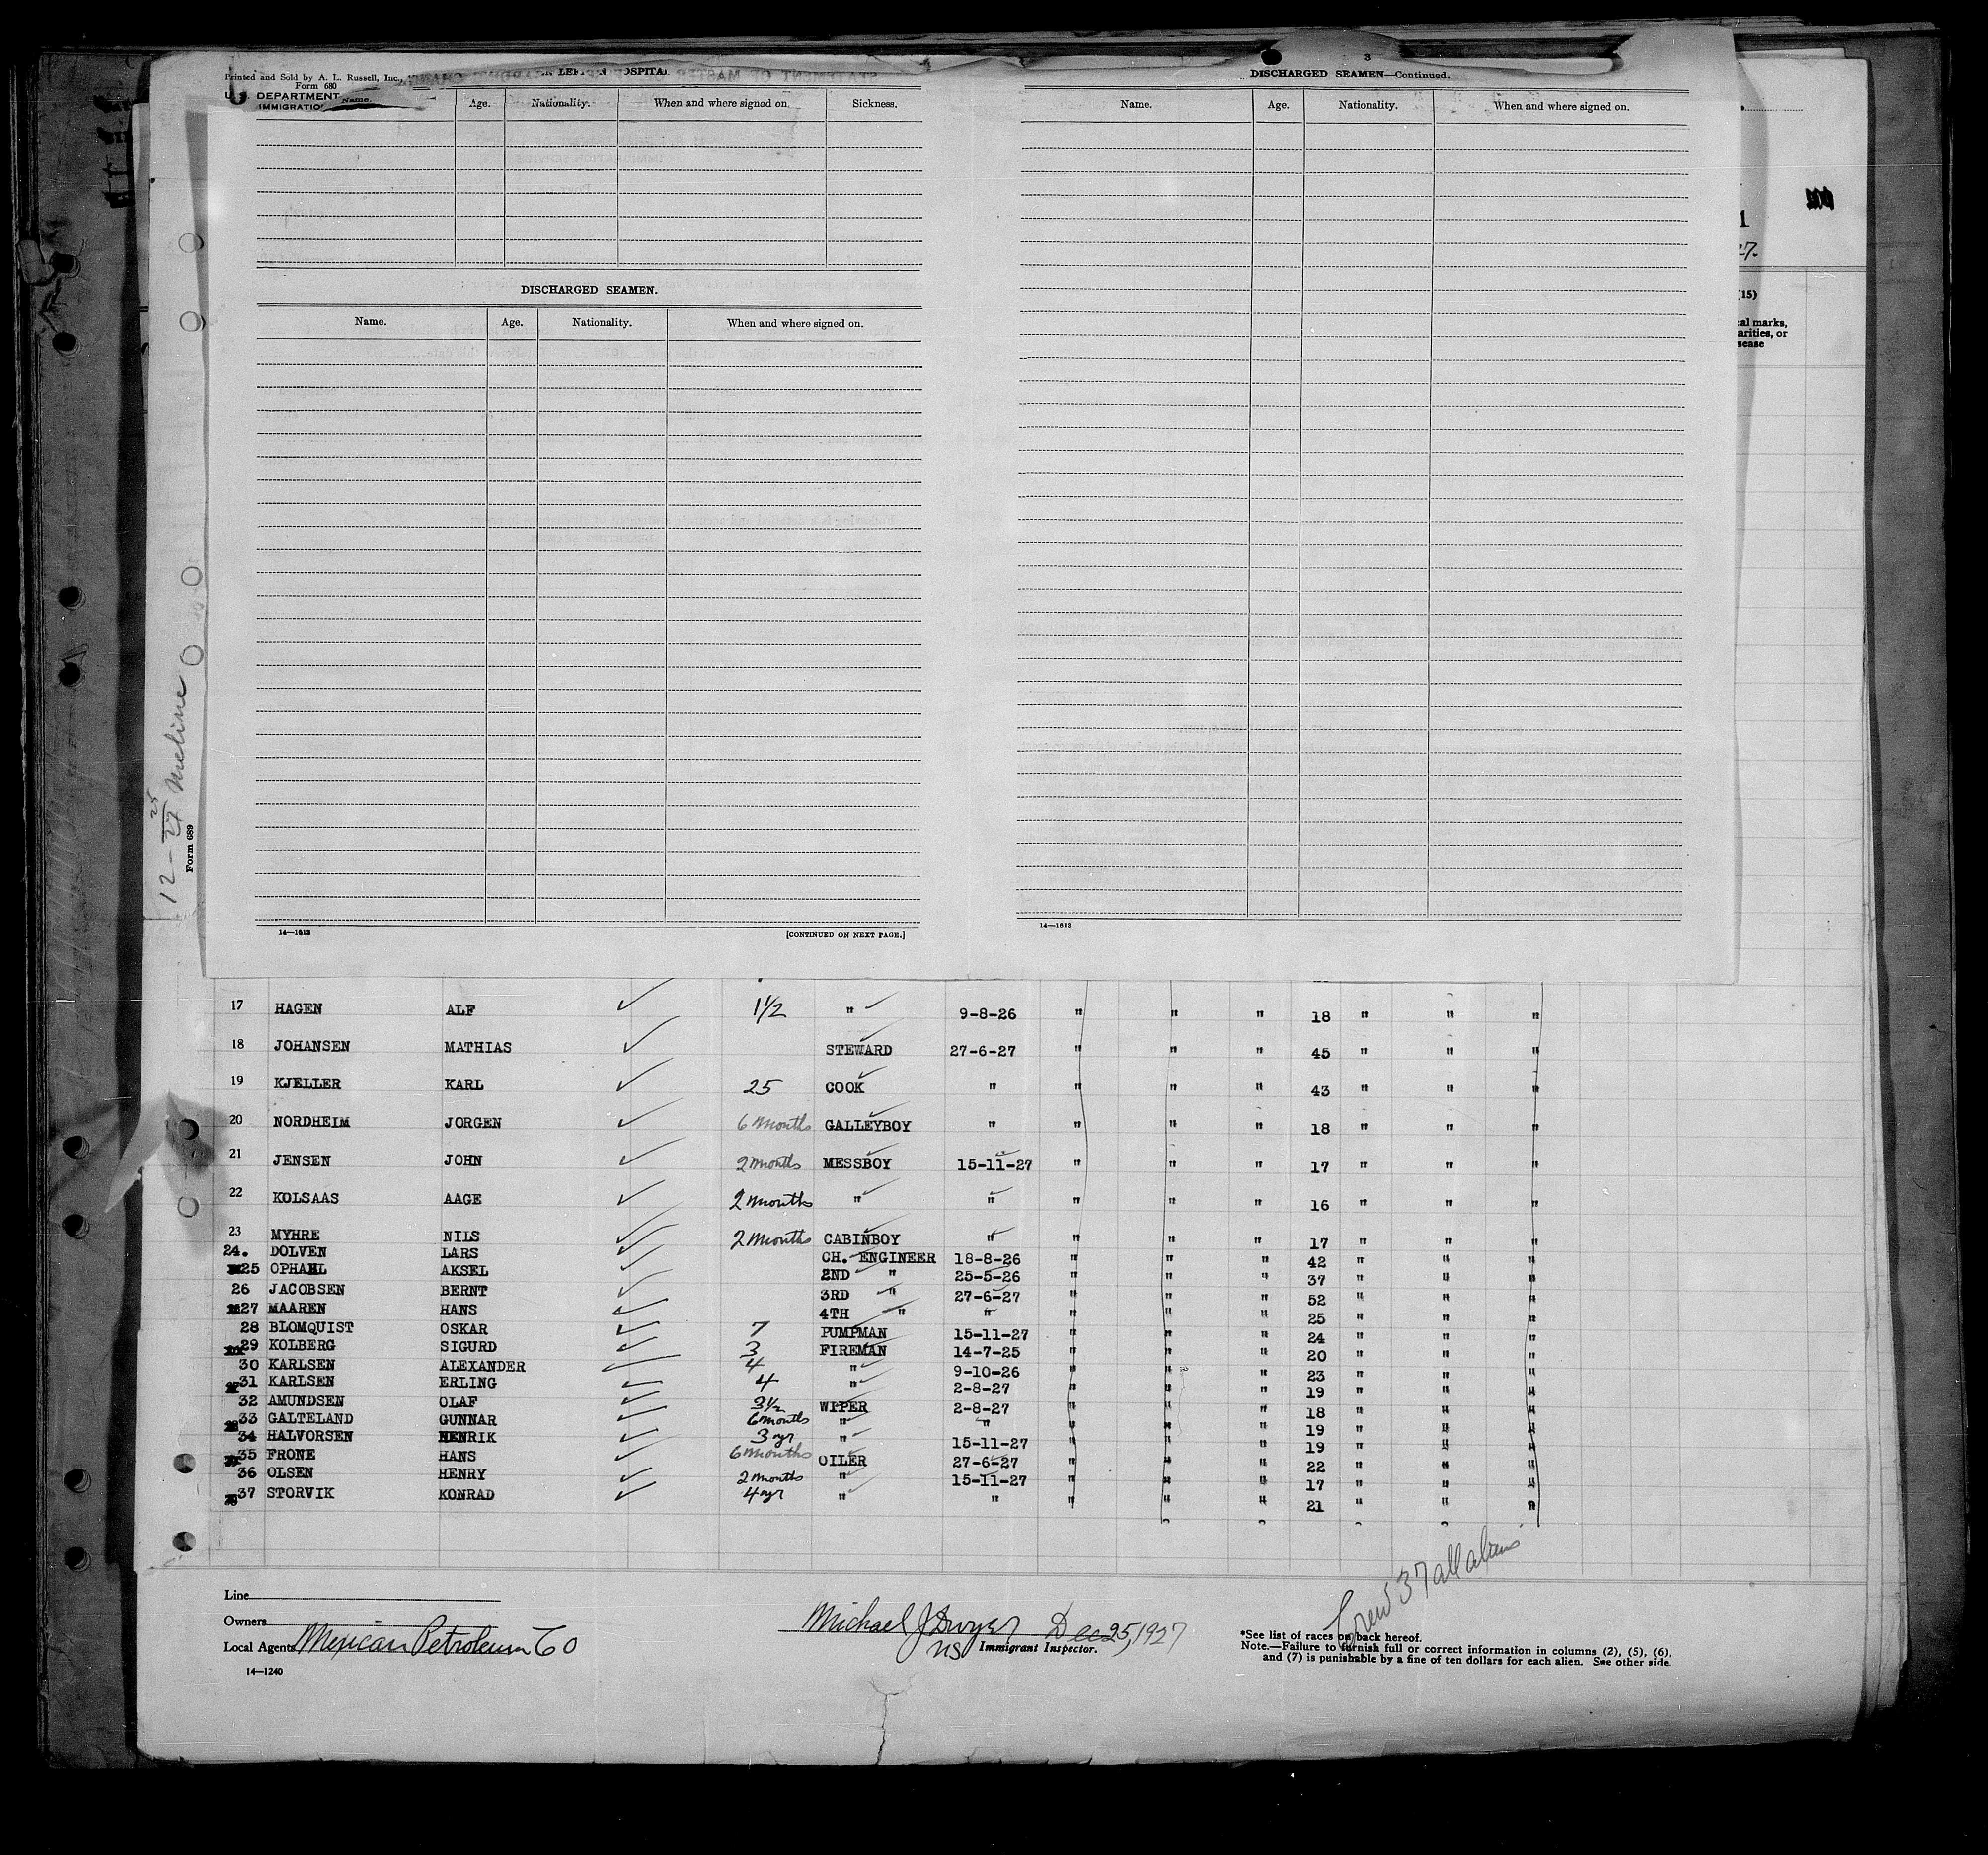 Printed and Sold by A. L. Russell, Inc.,
Form 680
U. S. DEPARTMENT
IMMIGRATION
Name. Age. Nationality. When and where signed on Sickness.
DISCHARGED SEAMEN.
Name. Age. Nationality. When and where signed on.
14—1613 [CONTINUED ON NEXT PAGE.]
3
DISCHARGED SEAMEN—Continued.
Name. Age. Nationality. When and where signed on.
14—1613
27.
(15)
cal marks,
arities, or
sease
12-25/27 Meline
Form 689
17 HAGEN ALF ✓ 1½ " ✓ 9-8-26 " " " 18 " " "
18 JOHANSEN MATHIAS ✓ STEWARD 27-6-27 " " " 45 " " "
19 KJELLER KARL ✓ 25 COOK " " " " 43 " " "
20 NORDHEIM JORGEN ✓ 6 Months GALLEYBOY " " " " 18 " " "
21 JENSEN JOHN ✓ 2 months MESSBOY 15-11-27 " " " 17 " " "
22 KOLSAAS AAGE ✓ 2 months " " " " " 16 " " "
23 MYHRE NILS ✓ 2 Months CABINBOY " " " " 17 " " "
24. DOLVEN LARS ✓ CH. ENGINEER 18-8-26 " " " 42 " " "
25 OPHAHL AKSEL ✓ 2ND " 25-5-26 " " " 37 " " "
26 JACOBSEN BERNT ✓ 3RD " 27-6-27 " " " 52 " " "
27 MAAREN HANS ✓ 4TH " " " " " 25 " " "
28 BLOMQUIST OSKAR ✓ 7 PUMPMAN 15-11-27 " " " 24 " " "
29 KOLBERG SIGURD ✓ 3 FIREMAN 14-7-25 " " " 20 " " "
30 KARLSEN ALEXANDER ✓ 4 " 9-10-26 " " " 23 " " "
31 KARLSEN ERLING ✓ 4 " 2-8-27 " " " 19 " " "
32 AMUNDSEN OLAF ✓ 3½ WIPER 2-8-27 " " " 18 " " "
33 GALTELAND GUNNAR ✓ 6 months " " " " " 19 " " "
34 HALVORSEN HENRIK ✓ 3 yr " 15-11-27 " " " 19 " " "
35 FRONE HANS ✓ 6 Months OILER 27-6-27 " " " 22 " " "
36 OLSEN HENRY ✓ 2 months " 15-11-27 " " " 17 " " "
37 STORVIK KONRAD ✓ 4 yr " " " " " 21 " " "
Crew 37 all aliens
Line
Owners
Local Agents Mexican Petroleum Co
14—1240
Michael J Dwyer Dec 25, 1927
Immigrant Inspector.
*See list of races on back hereof.
Note.—Failure to furnish full or correct information in columns (2), (5), (6),
and (7) is punishable by a fine of ten dollars for each alien. See other side.